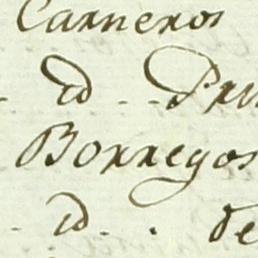 Carneros
id - - Pri
Borregos
- id - . de